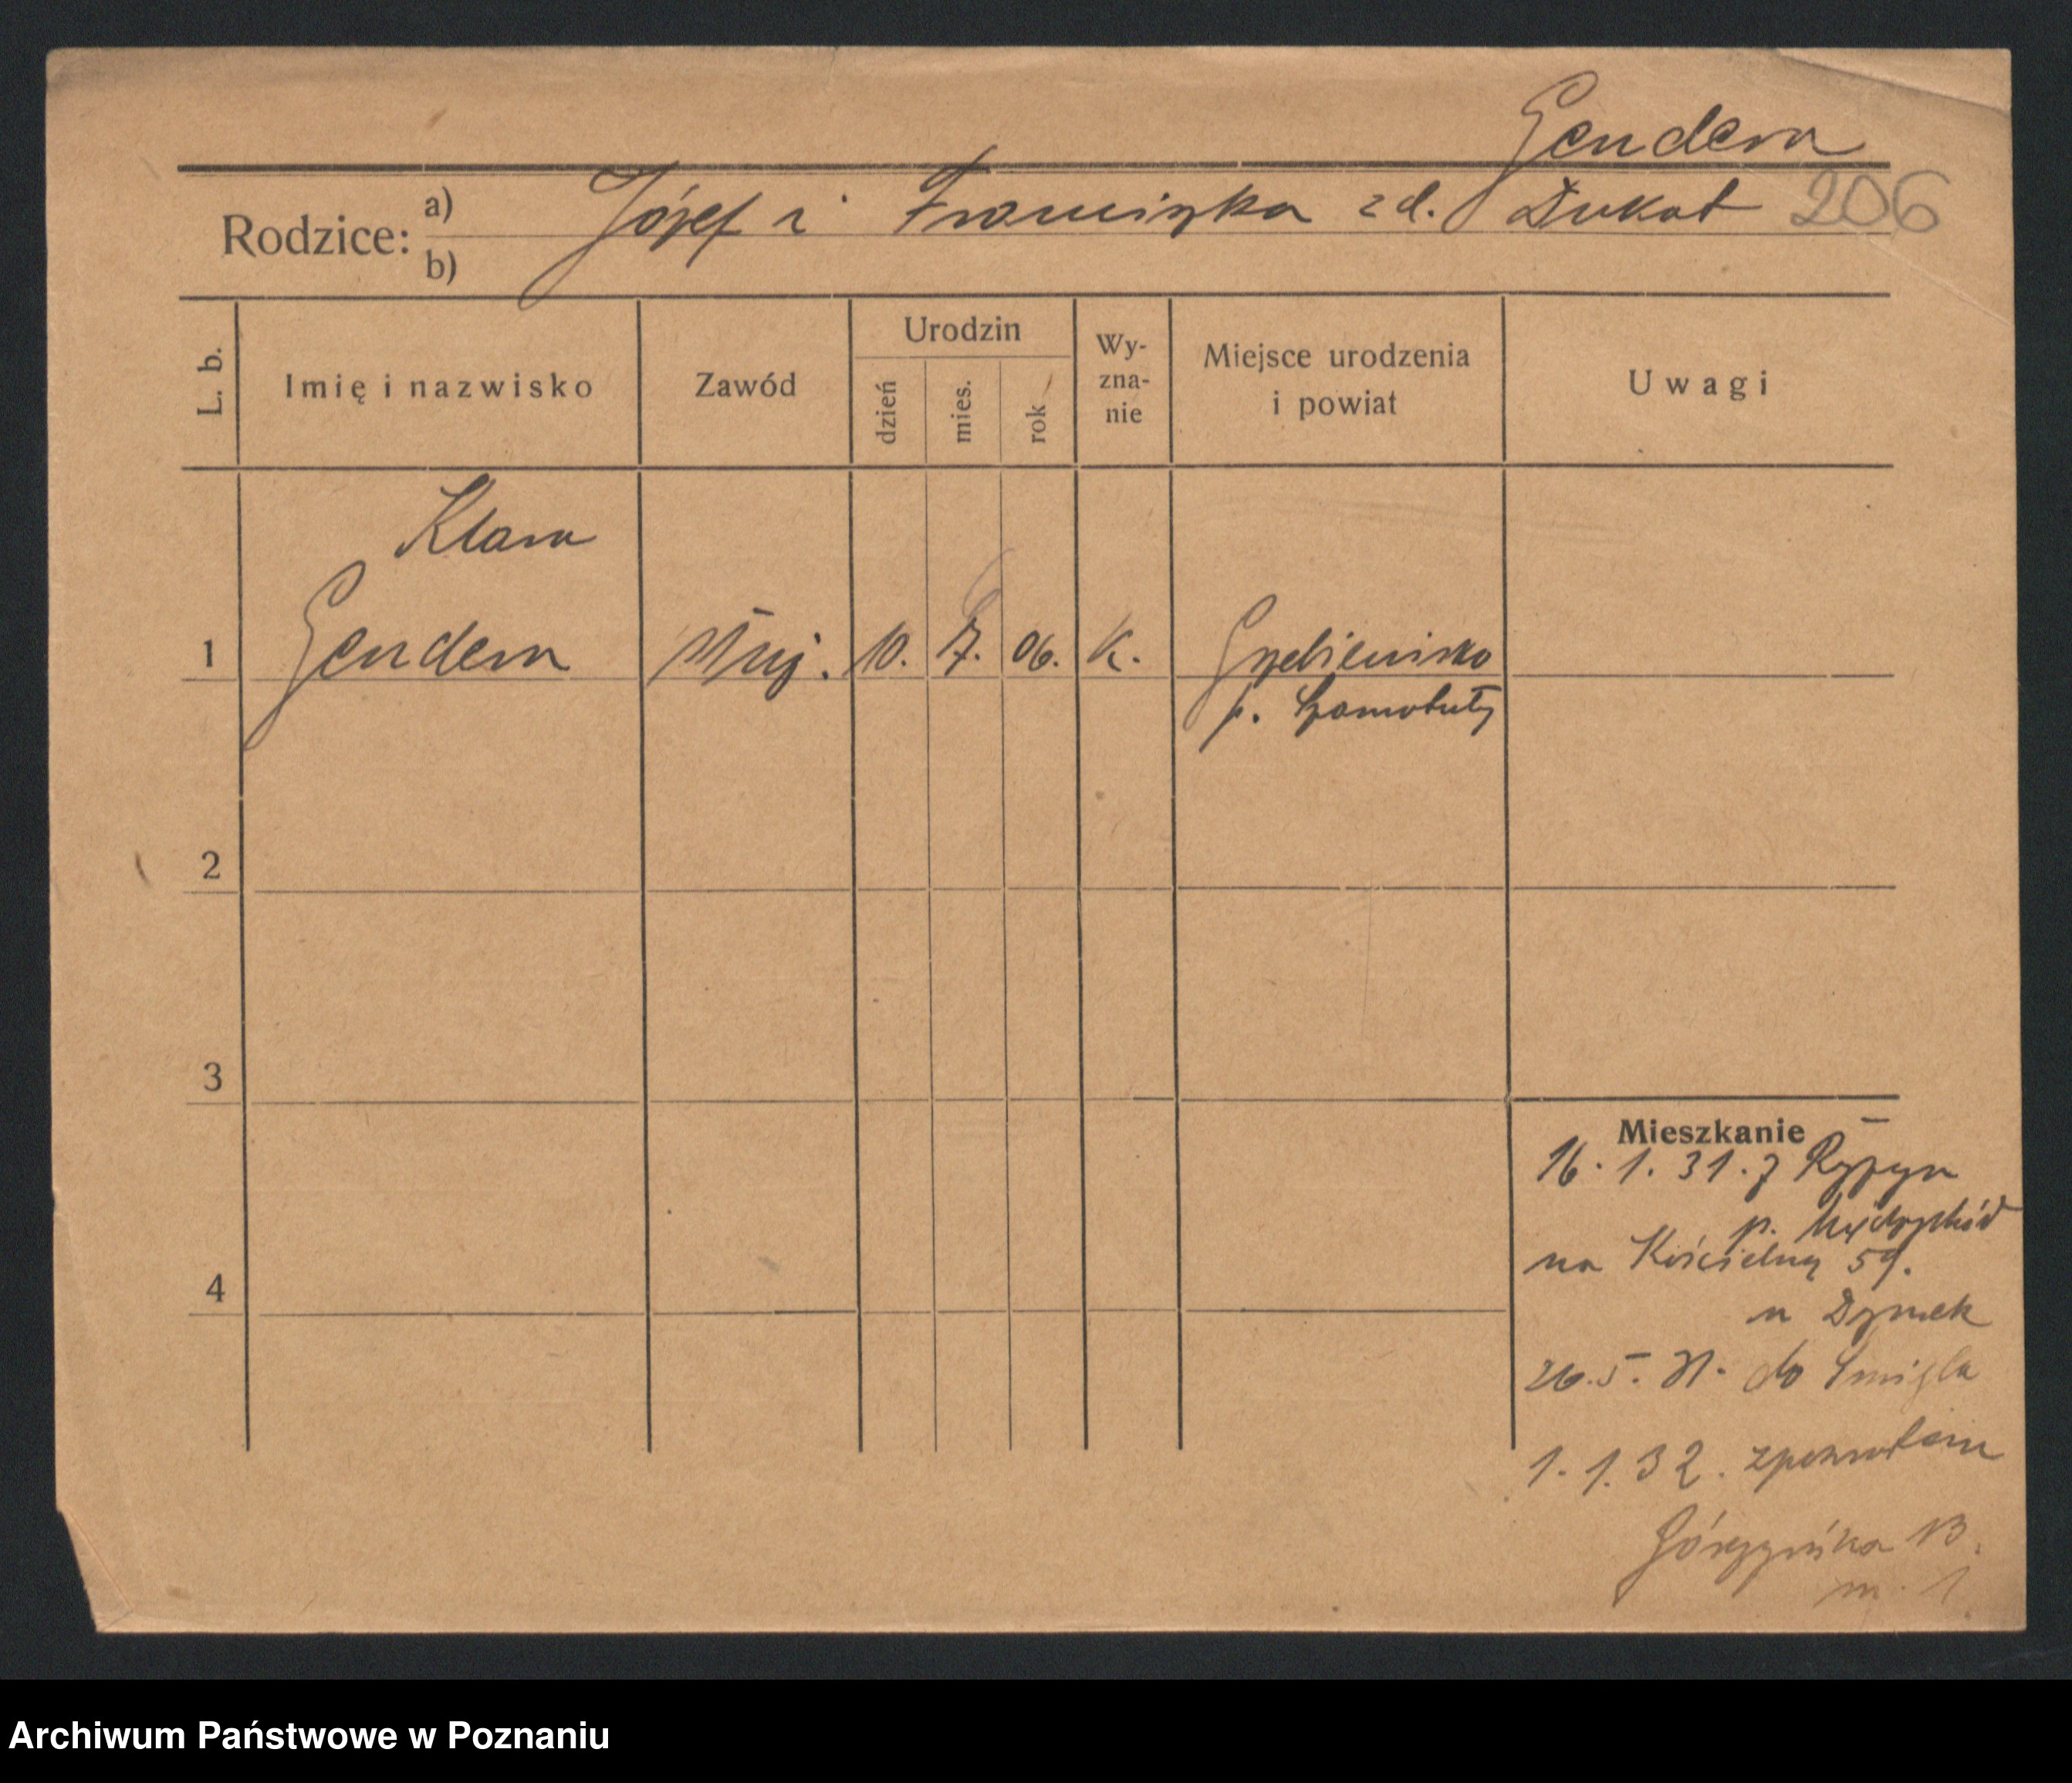 Gendera
Rodzice: a) Józef i Franciszka zd. Dukat 206
b)
L. b.
Imię i nazwisko
Zawód
Urodzin
dzień
mies.
rok
Wy-
zna-
nie
Miejsce urodzenia
i powiat
Uwagi
Klara
1 Gendera służ. 10. 7. 06. K. Grzebienisko
p. Szamotuły
2
3
4
Mieszkanie
16. 1. 31. z
p. Międzychód
na Kościelną 59.
u Dymek
26. 5. 31. do Smigla
1. 1. 32. zpowrotem
Górczyńska 13.
m. 1
Archiwum Państwowe w Poznaniu